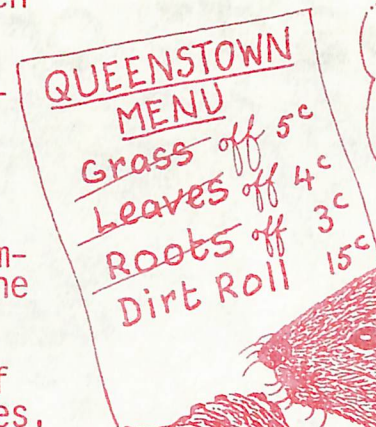 QUEENSTOWN
MENU
Grass off 5c
Leaves off 4c
Roots off 3c
Dirt Roll 15c